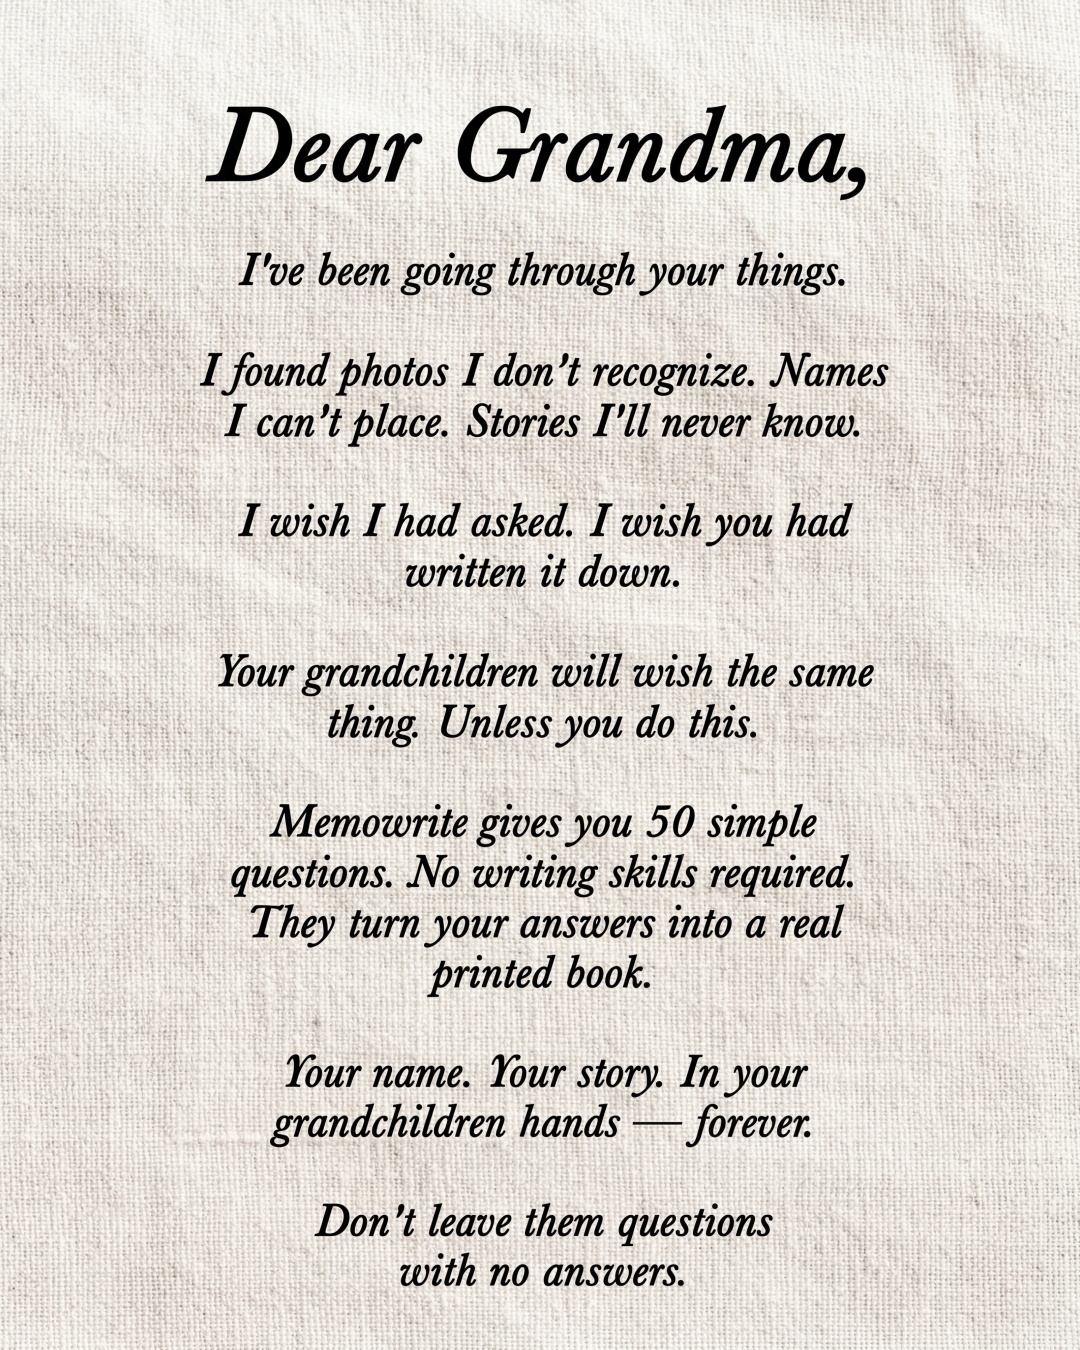 Dear Grandma,
I've been going through your things.
I found photos I don’t recognize. Names
I can’t place. Stories I'll never know.
I wish I had asked. I wish you had
written it down.
Your grandchildren will wish the same
thing. Unless you do this.
Memowrite gives you 50 simple
questions. No writing skills required.
They turn your answers into a real
printed book.
Your name. Your story. In your
grandchildren hands — forever.
Don’t leave them questions
with no answers.